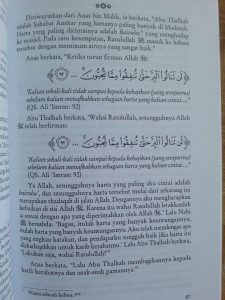 Diriwayatkan dari Anas bin Malik, ia berkata, "Abu Thalhah
adalah Sahabat Anshar yang hartanya paling banyak di Madinah.
Harta yang paling dicintainya adalah Bairuha' yang menghadap
ke masjid. Pada satu kesempatan, Rasulullah ﷺ masuk ke kebun
tersebut dengan meminum airnya yang sangat baik."
Anas berkata, "Ketika turun firman Allah ﷻ:
لَن تَنَالُوا الْبِرَّ حَتَّىٰ تُنفِقُوا مِمَّا تُحِبُّونَ
'Kalian sekali-kali tidak sampai kepada kebajikan (yang sempurna)
sebelum kalian menafkahkan sebagian harta yang kalian cintai...,'
(QS. Ali 'Imran: 92)
Abu Thalhah berkata, "Wahai Rasulullah, sesungguhnya Allah ﷻ
telah berfirman:
لَن تَنَالُوا الْبِرَّ حَتَّىٰ تُنفِقُوا مِمَّا تُحِبُّونَ
'Kalian sekali-kali tidak sampai kepada kebajikan (yang sempurna)
sebelum kalian menafkahkan sebagian harta yang kalian cintai...,'
(QS. Ali 'Imran: 92)
Ya Allah, sesungguhnya harta yang paling aku cintai adalah
bairuha', dan sesungguhnya harta tersebut mulai dari sekarang ini
merupakan shadaqah di jalan Allah. Dengannya aku mengharapkan
kebaikan di sisi Allah ﷻ. Karena itu wahai Rasulullah letakkanlah
ia sesuai dengan apa yang diperintahkan oleh Allah ﷻ." Lalu Nabi
ﷺ bersabda: "Bagus, itulah harta yang banyak keuntungannya,
itulah harta yang banyak keuntungannya. Aku telah mendengar apa
yang engkau katakan, dan pendapatku sungguh baik jika harta itu
dishadaqahkan untuk karib kerabatmu." Lalu Abu Thalhah berkata,
"Lakukan saja, wahai Rasulullah!"
Anas berkata, "Lalu Abu Thalhah membagikannya kepada
karib kerabatnya dan anak-anak pamannya."
Nama sebuah kebun.
87